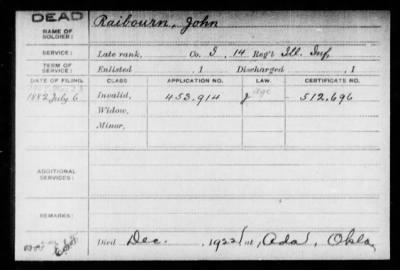 DEAD
NAME OF SOLDIER: Raibourn, John
SERVICE: Late rank, Co. I, 14 Reg't Ill. Inf,
TERM OF SERVICE: Enlisted , 1 Discharged , 1
DATE OF FILING. CLASS. APPLICATION NO. LAW. CERTIFICATE NO.
1882 July 6 Invalid, 453.914 age 512.696
Widow,
Minor,
ADDITIONAL SERVICES:
REMARKS:
Died Dec. , 1922, at Ada, Okla